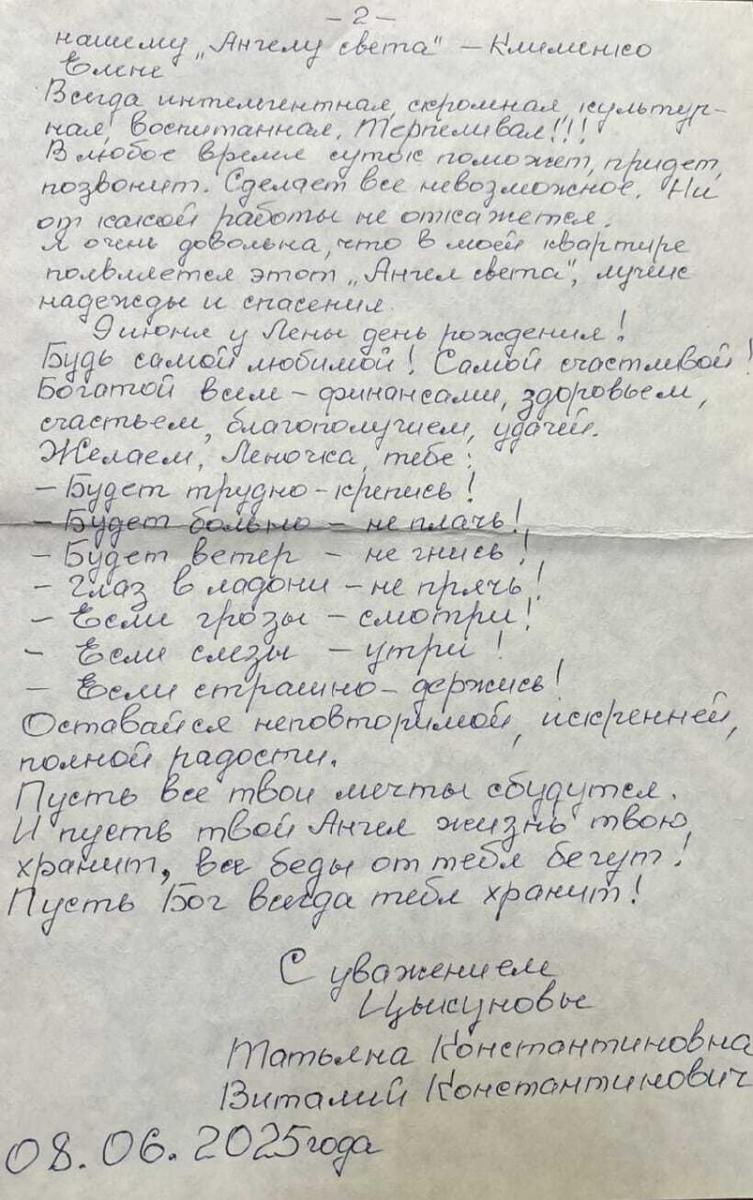 - 2 -
нашему „Ангелу света" - Клименко
Елене
Всегда интелегентная, скромная, культур-
ная, воспитанная. Терпеливая!!!
В любое время суток поможет, придет,
позвонит. Сделает все невозможное. Ни
от какой работы не откажется.
Я очень довольна, что в моей квартире
появляется этот „Ангел света", лучик
надежды и спасения.
9 июня у Лены день рождения!
Будь самой любимой! Самой счастливой!
Богатой всем - финансами, здоровьем,
счастьем, благополучием, удачей.
Желаем, Леночка, тебе:
- Будет трудно - крепись!
- Будет больно - не плачь!
- Будет ветер - не гнись!
- Глаз в ладони - не прячь!
- Если грозы - смотри!
- Если слезы - утри!
- Если страшно - держись!
Оставайся неповторимой, искренней,
полной радости.
Пусть все твои мечты сбудутся.
И пусть твой Ангел жизнь твою
хранит, все беды от тебя бегут!
Пусть Бог всегда тебя хранит!
С уважением
Цыкуновы
Татьяна Константиновна
Виталий Константинович
08.06.2025 года